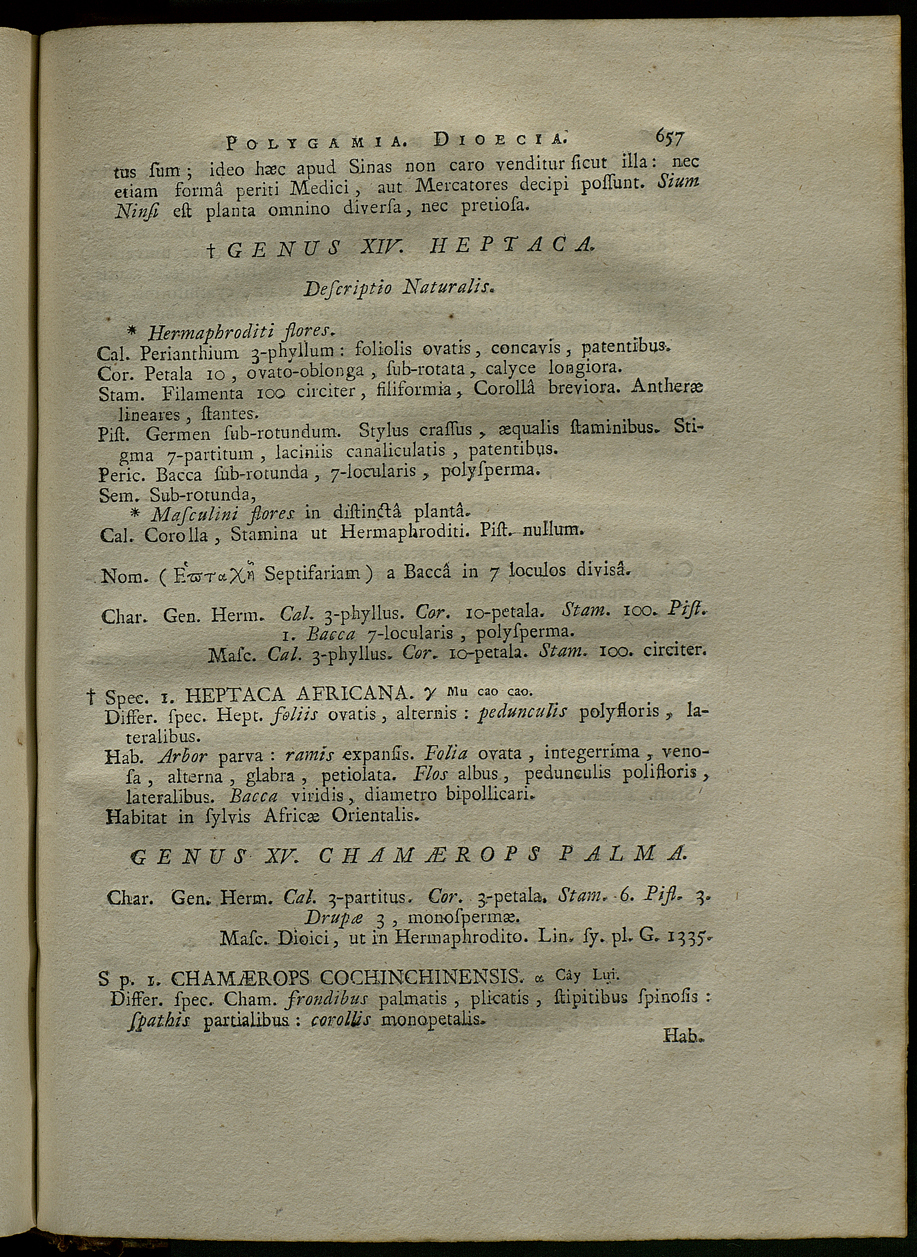 POLYGAMIA. DIOECIA. 657
tus ſum ; ideo hæc apud Sinas non caro venditur ſicut illa : nec
etiam formâ periti Medici , aut Mercatores decipi poſſunt. Sium
Ninſi eſt planta omnino diverſa , nec pretioſa.
† GENUS XIV. HEPTACA.
Deſcriptio Naturalis.
* Hermaphroditi flores.
Cal. Perianthium 3-phyllum : foliolis ovatis , concavis , patentibus.
Cor. Petala 10 , ovato-oblonga , ſub-rotata , calyce longiora.
Stam. Filamenta 100 circiter , filiformia , Corollâ breviora. Antheræ
lineares , ſtantes.
Piſt. Germen ſub-rotundum. Stylus craſſus , æqualis ſtaminibus. Sti-
gma 7-partitum , laciniis canaliculatis , patentibus.
Peric. Bacca ſub-rotunda , 7-locularis , polyſperma.
Sem. Sub-rotunda,
* Maſculini flores in diſtinctâ plantâ.
Cal. Corolla , Stamina ut Hermaphroditi. Piſt. nullum.
Nom. ( Ἑπταχῆ Septifariam ) a Baccâ in 7 loculos divisâ.
Char. Gen. Herm. Cal. 3-phyllus. Cor. 10-petala. Stam. 100. Piſt.
1. Bacca 7-locularis , polyſperma.
Maſc. Cal. 3-phyllus. Cor. 10-petala. Stam. 100. circiter.
† Spec. 1. HEPTACA AFRICANA. γ Mu cao cao.
Differ. ſpec. Hept. foliis ovatis , alternis : pedunculis polyfloris , la-
teralibus.
Hab. Arbor parva : ramis expanſis. Folia ovata , integerrima , veno-
ſa , alterna , glabra , petiolata. Flos albus , pedunculis polifloris ,
lateralibus. Bacca viridis , diametro bipollicari.
Habitat in ſylvis Africæ Orientalis.
GENUS XV. CHAMÆROPS PALMA.
Char. Gen. Herm. Cal. 3-partitus. Cor. 3-petala. Stam. 6. Piſt. 3.
Drupæ 3 , monoſpermæ.
Maſc. Dioici , ut in Hermaphrodito. Lin. ſy. pl. G. 1335.
S p. 1. CHAMÆROPS COCHINCHINENSIS. α Cây Lụi.
Differ. ſpec. Cham. frondibus palmatis , plicatis , ſtipitibus ſpinoſis :
ſpathis partialibus : corollis monopetalis.
Hab.